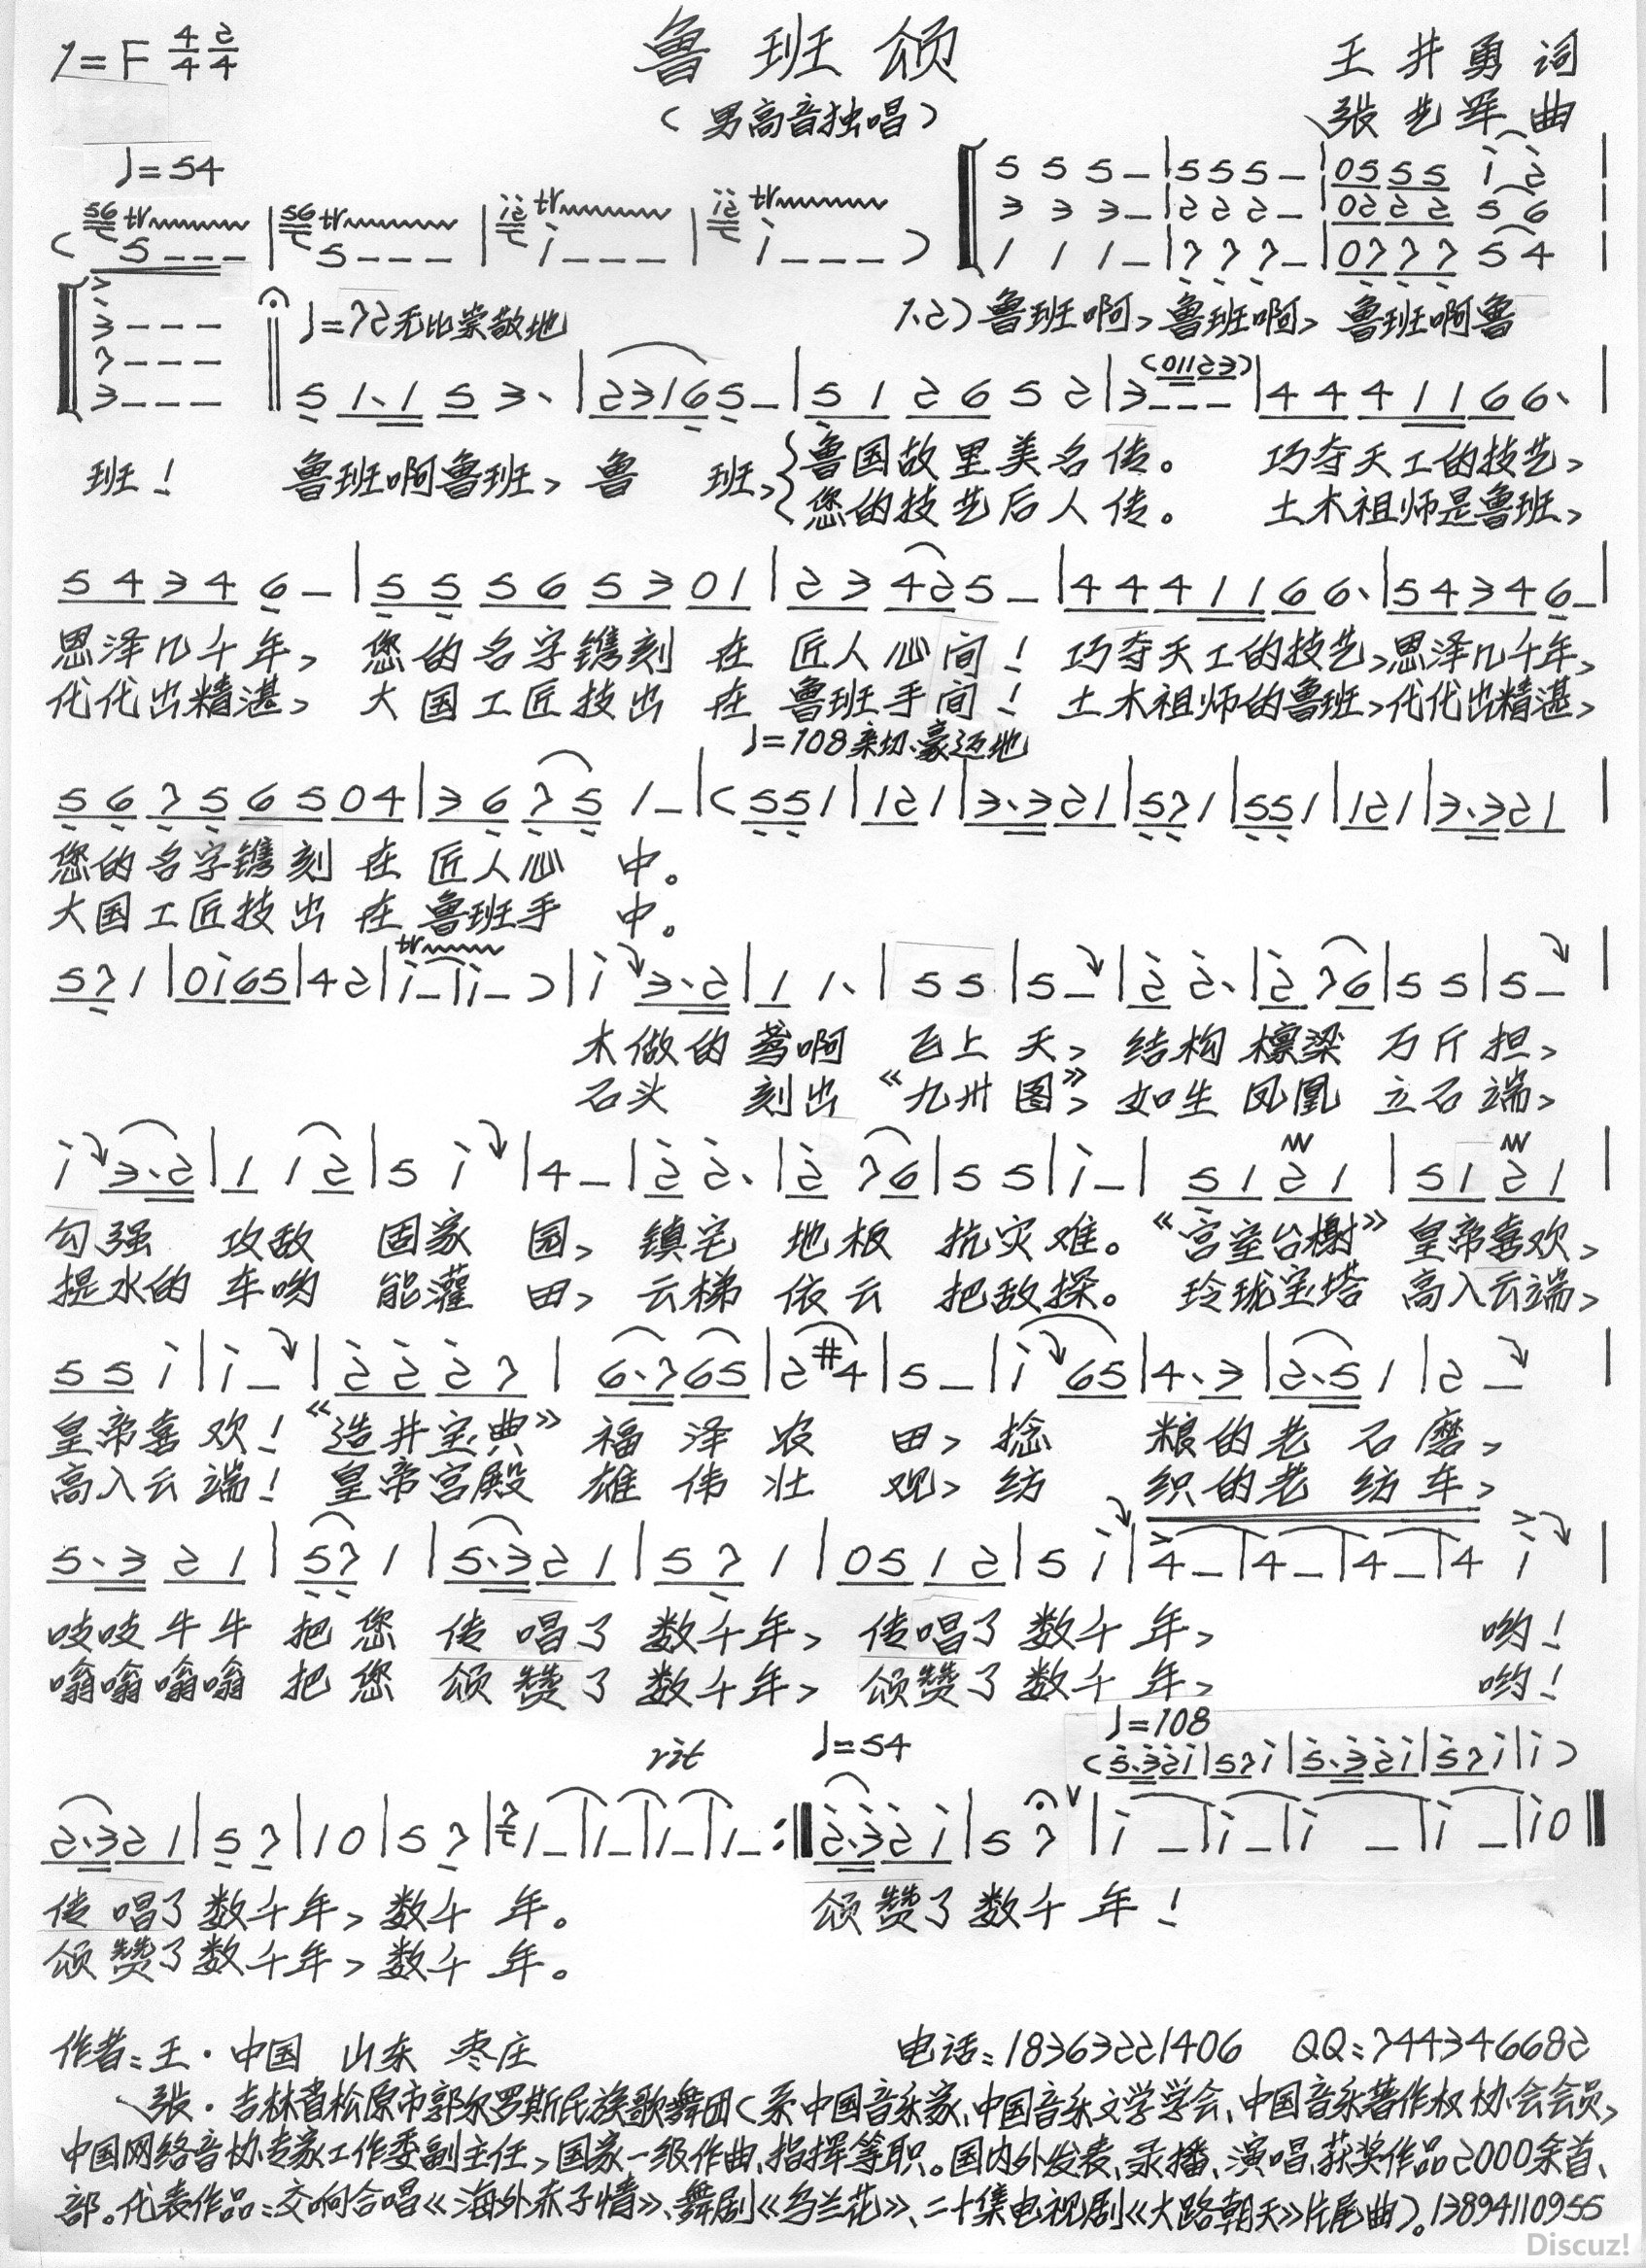 1=F 4/4 2/4
鲁班颂
王井勇 词
（男高音独唱）
张艺军 曲
♩=54
5 5 5 – | 5 5 5 – | 0555 i 2
3 3 3 – | 2 2 2 – | 0222 5 6
1 1 1 – | 7 7 7 – | 0777 5 4
( 56 tr 5 – – – | 56 tr 5 – – – | i2 tr i – – – | i2 tr i – – – )
♩=72 无比崇敬地
1.2) 鲁班啊，鲁班啊，鲁班啊鲁
3 – – –
7 – – –
3 – – –
5 1.1 5 3. | 23165 – | 5 1 2 6 5 2 | 3 – – – (01123) | 4 4 4 1 1 6 6. |
班！ 鲁班啊鲁班，鲁 班， 鲁国故里美名传。 巧夺天工的技艺，
您的技艺后人传。 土木祖师是鲁班，
5 4 3 4 6 – | 5 5 5 6 5 3 0 1 | 2 3 4 2 5 – | 4 4 4 1 1 6 6. | 5 4 3 4 6 – |
恩泽几千年， 您的名字镌刻 在 匠人心间！ 巧夺天工的技艺，恩泽几千年，
代代出精湛， 大国工匠技出 在 鲁班手间！ 土木祖师的鲁班，代代出精湛，
♩=108 亲切、豪迈地
5 6 7 5 6 5 0 4 | 3 6 7 5 1 – | ( 5 5 1 | 1 2 1 | 3.3 2 1 | 5 7 1 | 5 5 1 | 1 2 1 | 3.3 2 1 |
您的名字镌刻 在 匠人心 中。
大国工匠技出 在 鲁班手 中。
tr
5 7 1 | 0 i 6 5 | 4 2 | i – | i – ) | i 3.2 | 1 1. | 5 5 | 5 – | 2 2. | 2 7 6 | 5 5 | 5 – |
木做的鸢啊 飞上 天， 结构 檩梁 万斤 担，
石头 刻出《九州图》，如生 凤凰 立石 端，
i 3.2 | 1 1 2 | 5 i | 4 – | 2 2. | 2 7 6 | 5 5 | i – | 5 1 2 1 | 5 1 2 1 |
勾强 攻敌 固家 园， 镇宅 地板 抗灾难。《宫室台榭》皇帝喜欢，
提水的 车哟 能灌 田， 云梯 依云 把敌探。 玲珑宝塔 高入云端，
5 5 i | i – | 2 2 2 7 | 6.7 6 5 | 2 #4 | 5 – | i 6 5 | 4. 3 | 2.5 1 | 2 – |
皇帝喜 欢！《造井宝典》福 泽 农 田，捻 粮的老 石磨，
高入云 端！ 皇帝宫殿 雄 伟 壮 观，纺 织的老 纺车，
5.3 2 1 | 5 7 1 | 5.3 2 1 | 5 7 1 | 0 5 1 2 | 5 i | 4 – | 4 – | 4 – | 4 i |
吱吱牛牛 把您 传 唱了 数千年， 传唱了 数千 年， 哟！
嗡嗡嗡嗡 把您 颂 赞了 数千年， 颂赞了 数千 年， 哟！
rit ♩=54 ♩=108
( 5.3 2 i | 5 7 i | 5.3 2 i | 5 7 i | i )
2.3 2 1 | 5 7 | 1 0 | 5 7 | 1 – | 1 – | 1 – | 1 – :| 2.3 2 i | 5 7 | i – | i – | i – | i – | i 0 ||
传 唱了 数千年，数千 年。 颂赞了 数千 年！
颂 赞了 数千年，数千 年。
作者：王·中国 山东 枣庄 电话：18363221406 QQ：744346682
张·吉林省松原市郭尔罗斯民族歌舞团（系中国音乐家、中国音乐文学学会、中国音乐著作权协会会员，
中国网络音协专家工作委副主任，国家一级作曲、指挥等职。国内外发表、录播、演唱、获奖作品2000余首、
部。代表作品：交响合唱《海外赤子情》、舞剧《乌兰花》、二十集电视剧《大路朝天》片尾曲）。13894110955
Discuz!